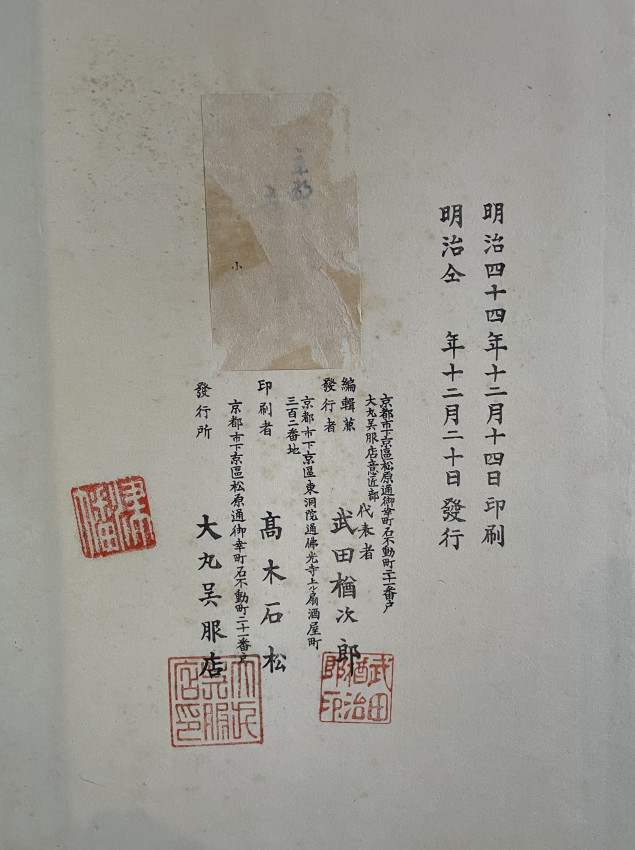 明治四十四年十二月十四日印刷
明治仝　年十二月二十日發行
京都市下京區松原通御幸町石不動町二十一番戸
大丸呉服店意匠部 代表者
編輯兼
發行者
武田楢次郎
京都市下京區東洞院通佛光寺上ル扇酒屋町
三百二番地
印刷者
髙木石松
京都市下京區松原通御幸町石不動町二十一番戸
發行所
大丸呉服店
京都
小
武田
楢治
郎印
大丸
呉服
店印